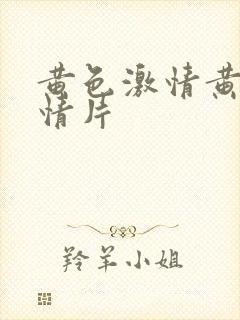 黄色激情黄
情片
羚羊小姐